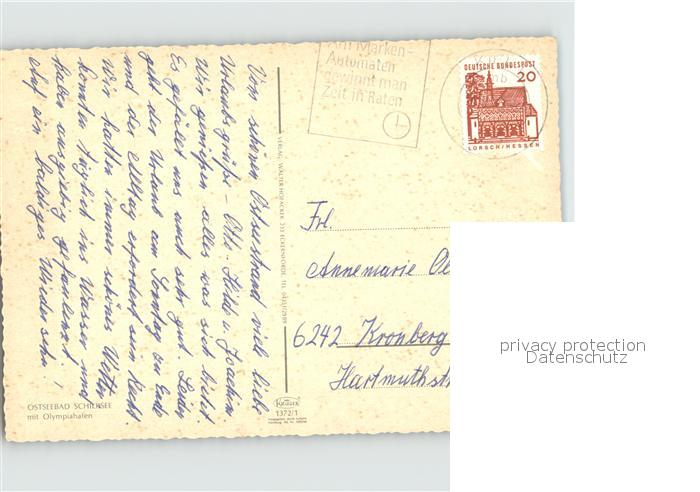 Vom schönen Ostseestrand viele liebe
Urlaubsgrüße - Otto - Hilde u. Joachim.
Wir genießen alles was sich bietet
Es gefällt uns auch sehr gut. Leider
geht der Urlaub am Sonntag zu Ende
und der Alltag erfordert sein Recht.
Wir hatten immer schönes Wetter
konnten täglich ins Wasser und
haben ausgiebig gefaulenzt!
Auf ein baldiges Wiedersehn!
OSTSEEBAD SCHILKSEE
mit Olympiahafen
VERLAG: WALTER HOFACKER, 233 ECKERNFÖRDE, TEL.
Krüger
1372/1
Am Marken-
Automaten
gewinnt man
Zeit in Raten
DEUTSCHE BUNDESPOST
20
LORSCH/HESSEN
Frl.
Annemarie
6242 Kronberg
Hartmuthstr
privacy protection
Datenschutz